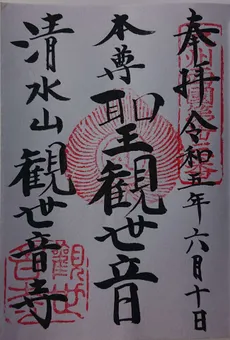 奉拝 令和五年六月十日
本尊 聖観世音
清水山 観世音寺